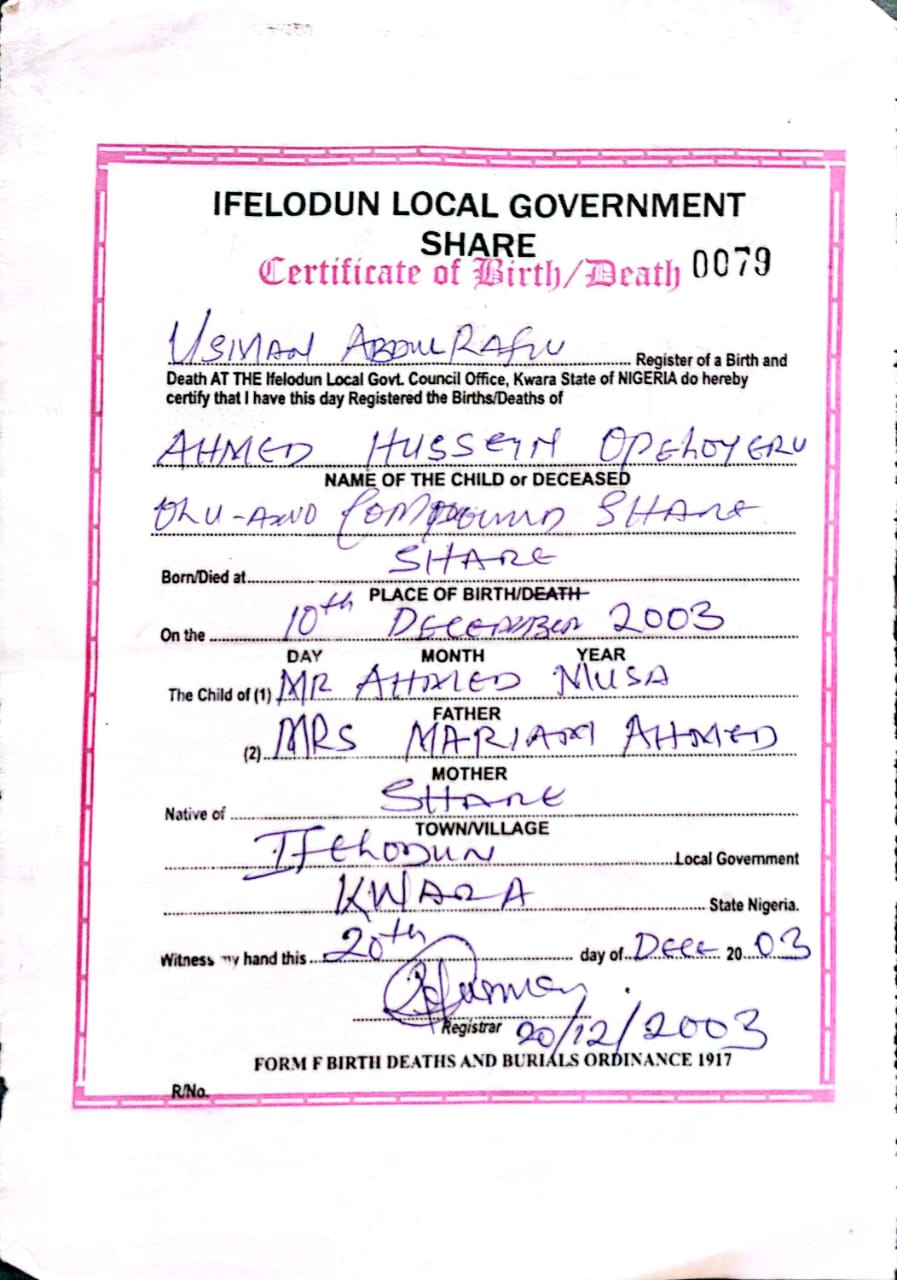 IFELODUN LOCAL GOVERNMENT
SHARE
Certificate of Birth/Death 0079
USMAN ABDULRAFIU Register of a Birth and
Death AT THE Ifelodun Local Govt. Council Office, Kwara State of NIGERIA do hereby
certify that I have this day Registered the Births/Deaths of
AHMED HUSSEIN OPELOYERU
NAME OF THE CHILD or DECEASED
COMPOUND SHARE
SHARE
Born/Died at
PLACE OF BIRTH/DEATH
On the 10th DECEMBER 2003
DAY MONTH YEAR
The Child of (1) MR AHMED MUSA
FATHER
(2) MRS MARIAM AHMED
MOTHER
Native of SHARE
TOWN/VILLAGE
IFELODUN Local Government
KWARA State Nigeria.
Witness my hand this 20th day of DECE 2003
Registrar 20/12/2003
FORM F BIRTH DEATHS AND BURIALS ORDINANCE 1917
R/No.